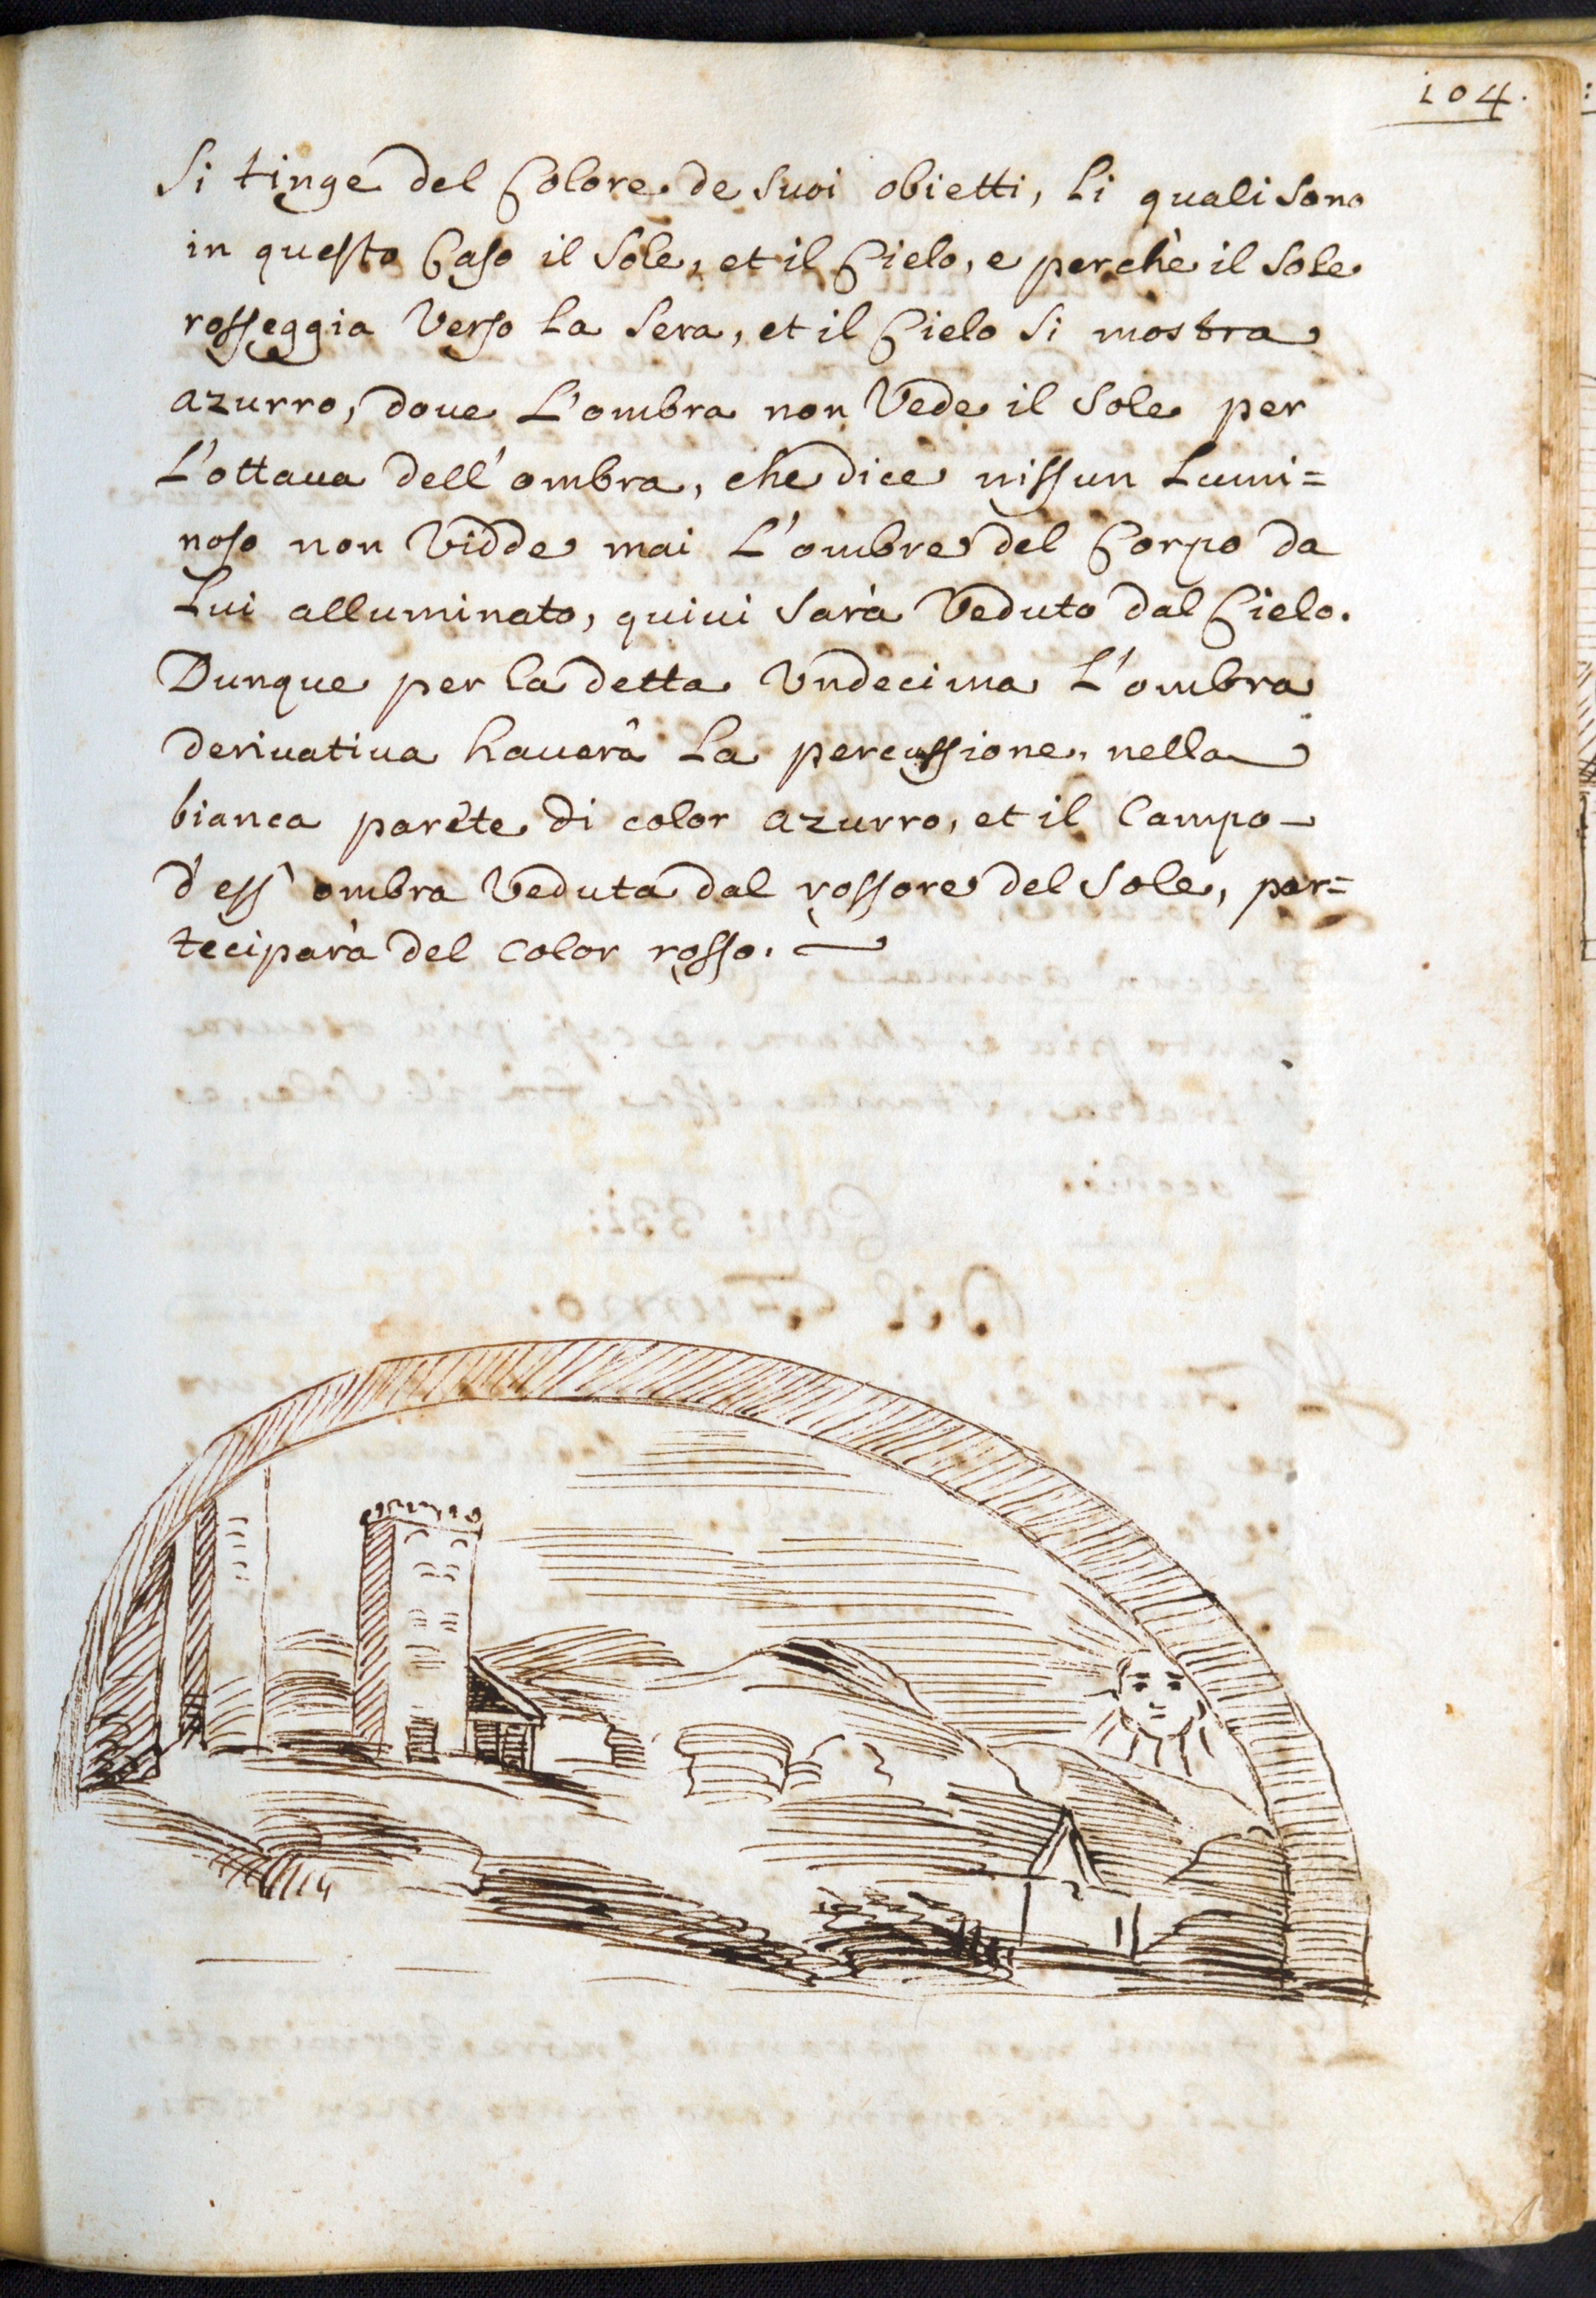 104.
Si tinge del Colore de suoi obietti, li quali sono
in questo Caso il Sole, et il Cielo, e perchè il Sole
rosseggia Verso la Sera, et il Cielo si mostra
azurro, doue L'ombra non Vede il Sole per
L'ottaua dell'ombra, che dice nissun Lumi=
noso non Vidde mai L'ombre del Corpo da
Lui alluminato, quiui sarà Veduto dal Cielo.
Dunque per la detta Vndecima L'ombra
deriuatiua hauerà La percussione nella
bianca parète di color azurro, et il Campo
d'ess' ombra Veduta dal rossore del Sole, par=
teciparà del color rosso.